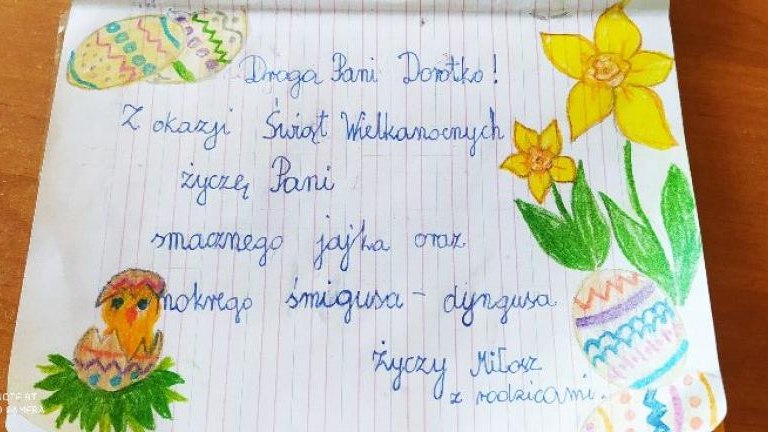 Droga Pani Dorotko!
Z okazji Świąt Wielkanocnych
życzę Pani
smacznego jajka oraz
mokrego śmigusa - dyngusa
życzy Miłosz
z rodzicami.